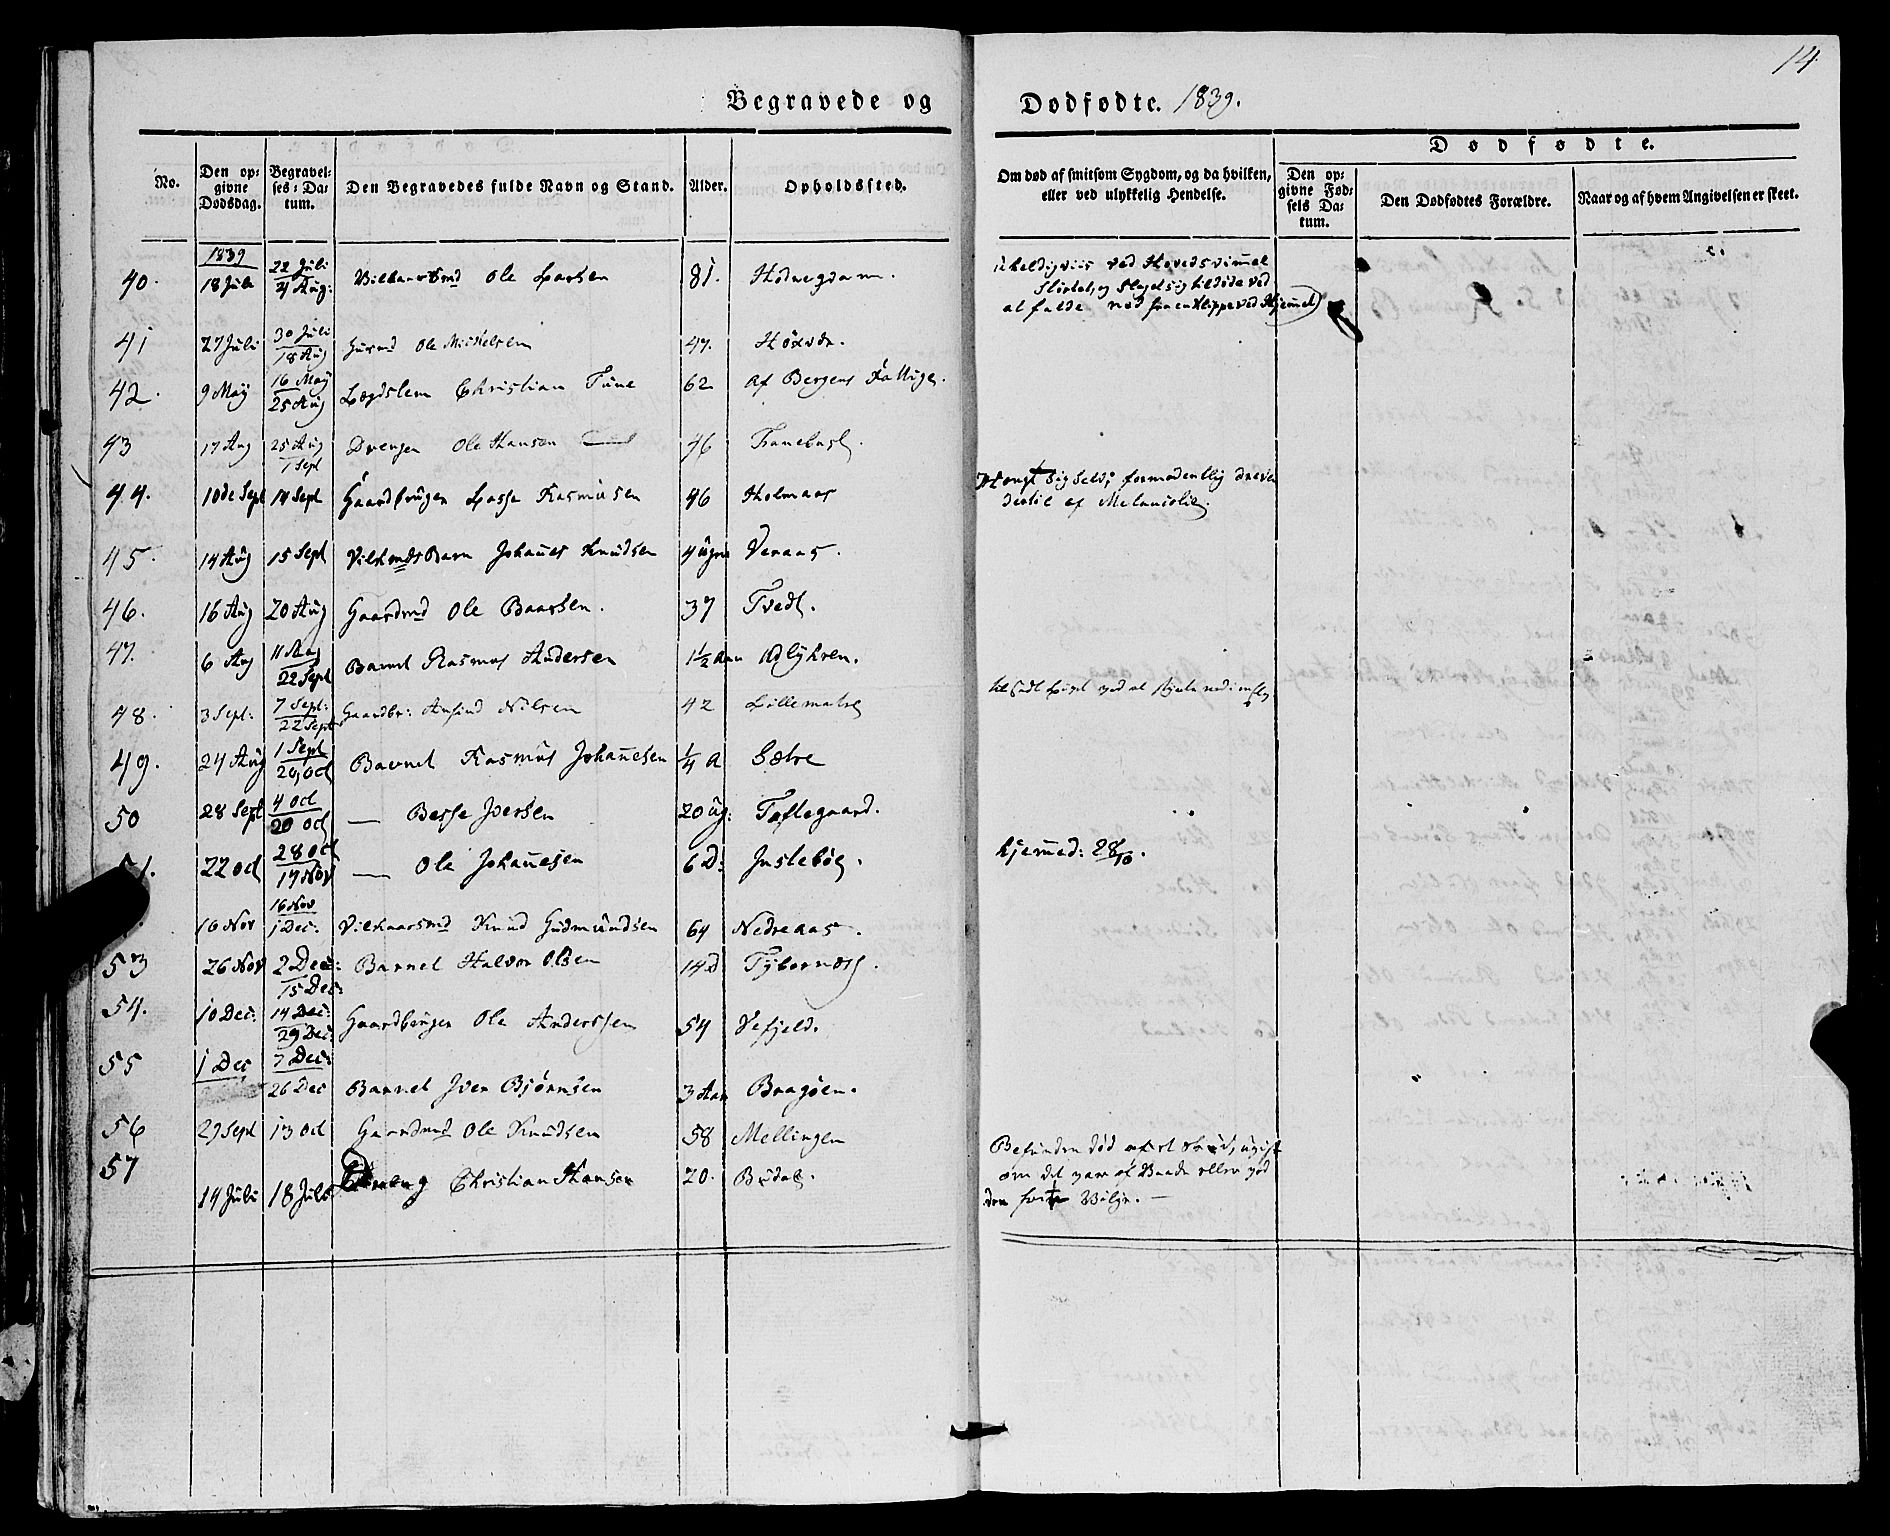 14.
Begravede og Dødfødte. 1839.
No.
Den opgivne Dødsdag.
Begravelses-Datum.
Den Begravedes fulde Navn og Stand.
Alder.
Opholdssted.
Om død af smitsom Sygdom, og da hvilken, eller ved ulykkelig Hendelse.
Dødfødte.
Den opgivne Fødsels Datum.
Den Dødfødtes Forældre.
Naar og af hvem Angivelsen er skeet.
1839
40. 18 Juli 22 Juli 4 Aug: Ole Larsen 81.
ved Hovedsvimmel
at falde ned fra en Klippe ved Hjemmet
41 27 Juli 30 Juli 18 Aug Huusmd Ole Mickelsen 47.
42. 9 May 16 May 25 Aug Lægdslem Christian Tune 62 Af Bergens Fattige.
43 17 Aug 25 Aug 1 Sept Drengen Ole Hansen 46
44. 10de Sept 14 Sept Gaardbruger Lasse Rasmusen 46 Holmaas
Hængt sig selv; formodentlig dreven
dertil af Melancolie.
45. 14 Aug 15 Sept Barn Johannes Knudsen 4 Ugr Veraas.
46. 16 Aug 20 Aug Gaardmd Ole Baarsen. 37 Tvedt.
47. 6 Aug 11 Aug 22 Sept Barnet Rasmus Andersen 1½ Aar Udlykken.
48. 3 Sept: 7 Sept: 22 Sept Gaardbr: Nilsen 42 Lillematre
49. 24 Aug 1 Sept 20 Oct Barnet Rasmus Johannesen ¼ A Sætre
50 28 Sept 4 Oct 20 Oct — Besse Iversen 20 Ug: Toftegaard.
51. 22 Oct 28 Oct 17 Nov — Ole Johannesen 6 D: Justebøe. hjemmed: 28/10.
10 Nov 16 Nov 1 Dec: Vilkaarsmd Knud Gudmundsen 64 Nedreaas.
53 26 Nov 2 Dec: 15 Dec: Barnet Halvor Olsen 14 D
54. 10 Dec: 14 Dec: 29 Dec: Gaardbruger Ole Anderssen 54 Vefjeld.
55 1 Dec 7 Dec: 26 Dec Barnet Iver Bjørnsen 3 Aar Bragøen.
56 29 Sept 13 Oct Gaardmd Ole Knudsen 58 Mellingen
57 14 Juli 18 Juli Dreng Christian Hansen 20. Brdal.
Befunden død
om det var af Vaade eller ved